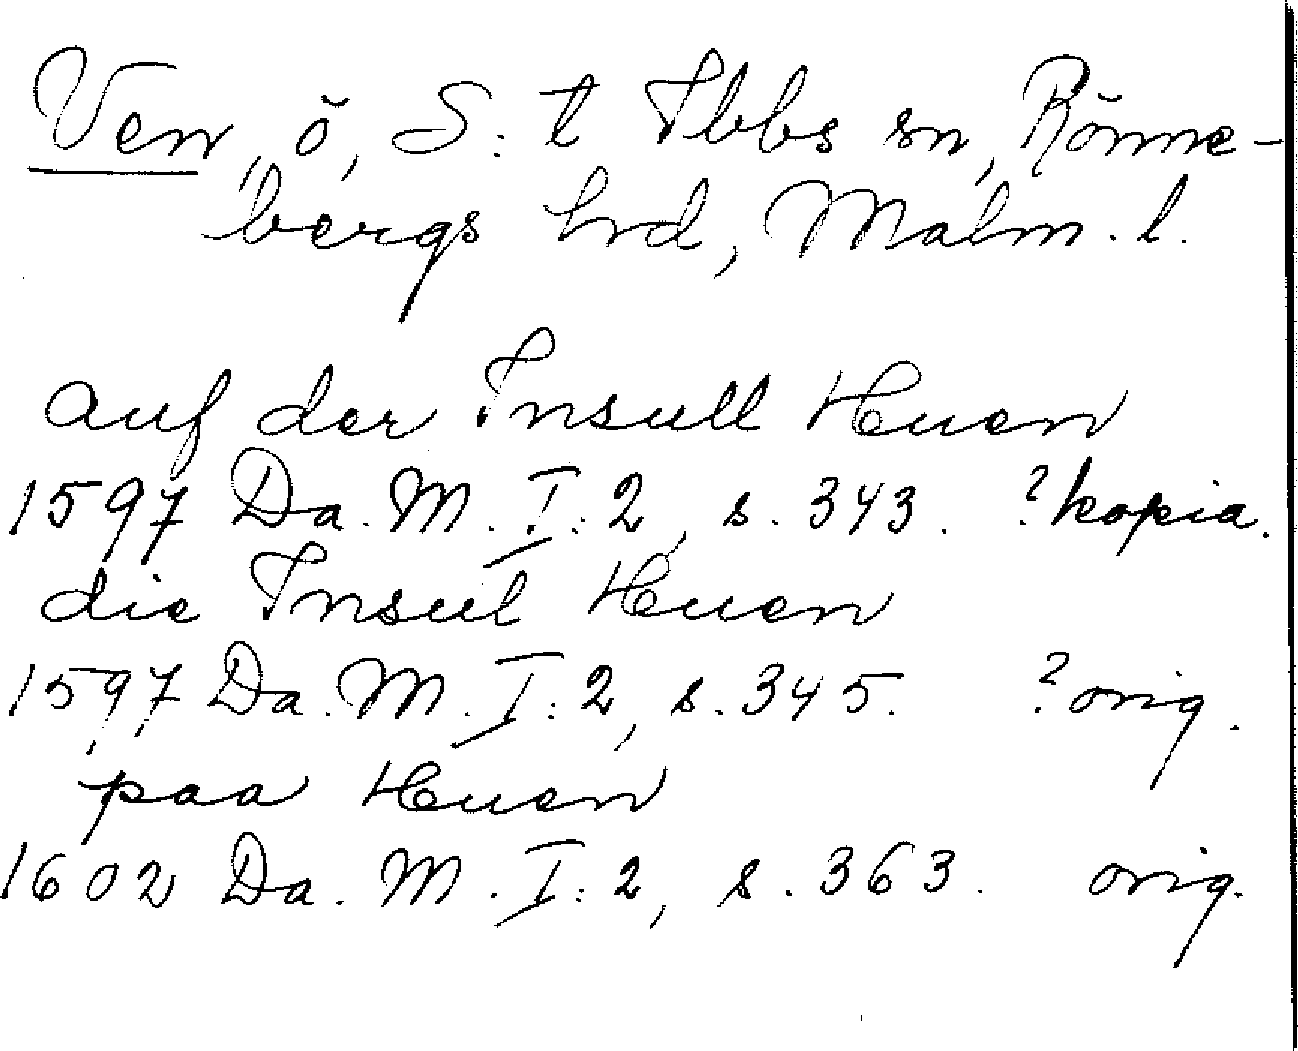 Ven, ö, S:t Ibbs sn, Rönne-
bergs hrd, Malm. l.
auf der Insull Huen
1597 Da. M. I:2, s. 343. ? kopia.
die Insul Huen
1597 Da. M. I:2, s. 345. ? orig.
paa Huen
1602 Da. M. I:2, s. 363. orig.